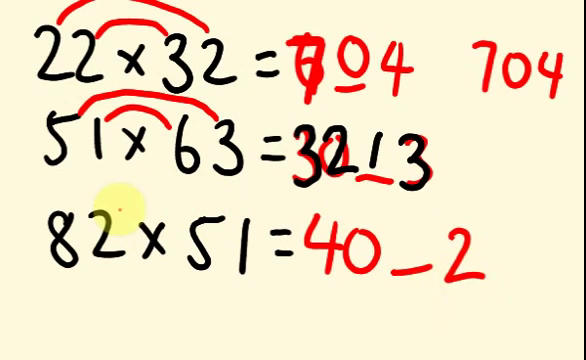 22 x 32 = 704 704
51 x 63 = 3213
82 x 51 = 40_2